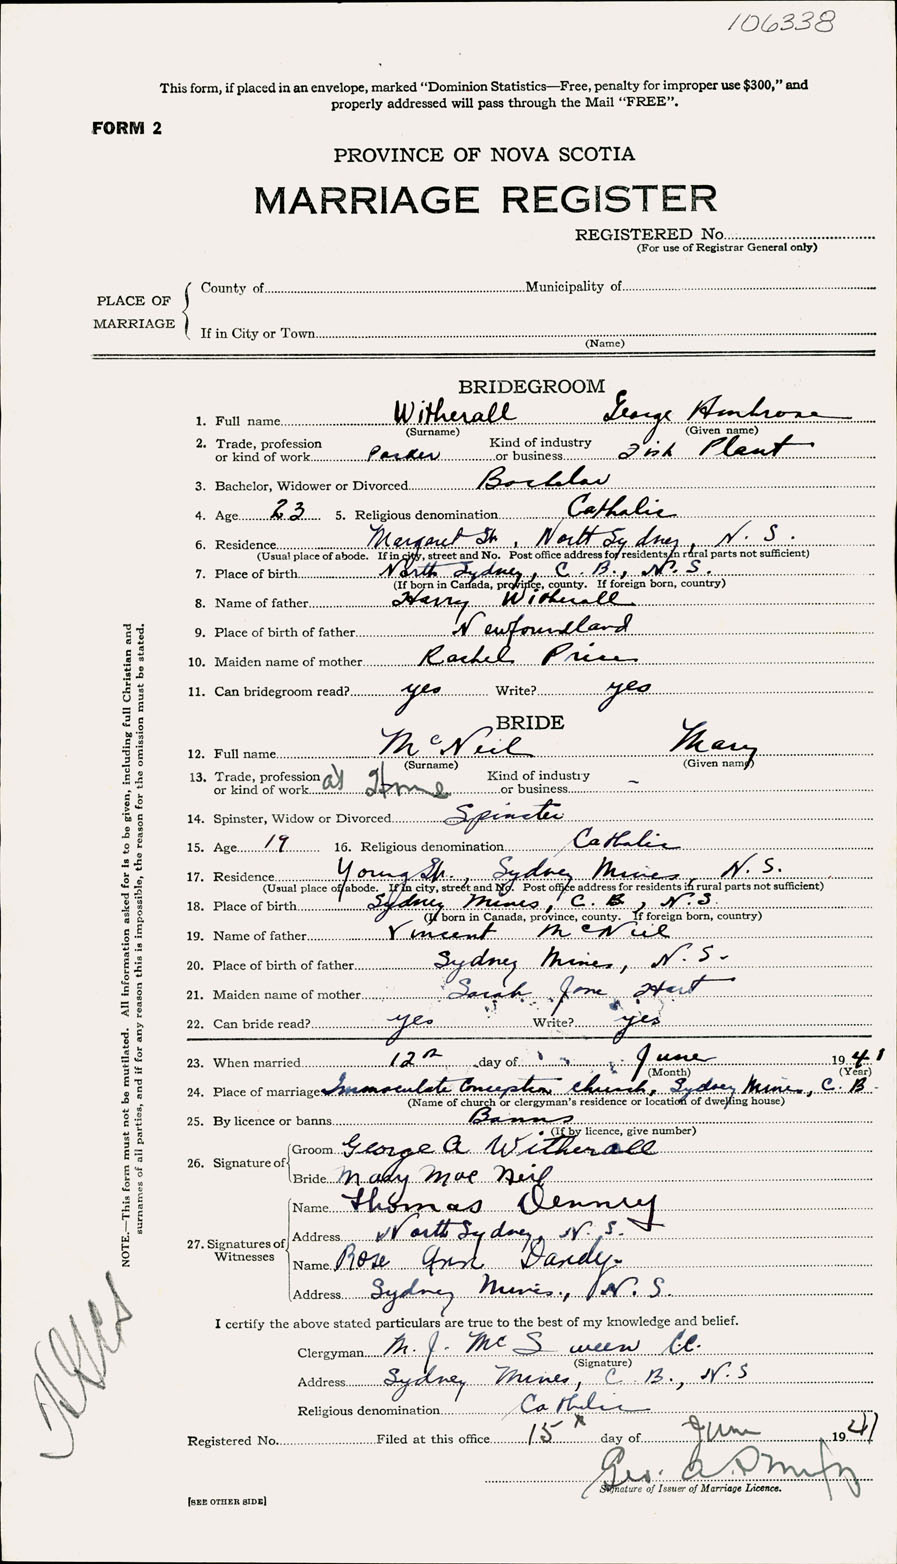 106338
This form, if placed in an envelope, marked “Dominion Statistics—Free, penalty for improper use $300,” and
properly addressed will pass through the Mail “FREE”.
FORM 2
PROVINCE OF NOVA SCOTIA
MARRIAGE REGISTER
REGISTERED No.
(For use of Registrar General only)
PLACE OF MARRIAGE
County of Municipality of
If in City or Town
(Name)
BRIDEGROOM
1. Full name Witherall George Ambrose
(Surname) (Given name)
2. Trade, profession or kind of work Packer Kind of industry or business Fish Plant
3. Bachelor, Widower or Divorced Bachelor
4. Age 23 5. Religious denomination Catholic
6. Residence Margaret St., North Sydney, N. S.
(Usual place of abode. If in city, street and No. Post office address for residents in rural parts not sufficient)
7. Place of birth North Sydney, C. B., N. S.
(If born in Canada, province, county. If foreign born, country)
8. Name of father Harry Witherall
9. Place of birth of father Newfoundland
10. Maiden name of mother Rachel Price
11. Can bridegroom read? yes Write? yes
BRIDE
12. Full name McNeil Mary
(Surname) (Given name)
13. Trade, profession or kind of work at Home Kind of industry or business –
14. Spinster, Widow or Divorced Spinster
15. Age 19 16. Religious denomination Catholic
17. Residence Young St., Sydney Mines, N. S.
(Usual place of abode. If in city, street and No. Post office address for residents in rural parts not sufficient)
18. Place of birth Sydney Mines, C. B., N. S.
(If born in Canada, province, county. If foreign born, country)
19. Name of father Vincent McNeil
20. Place of birth of father Sydney Mines, N. S.
21. Maiden name of mother Sarah Jane Hart
22. Can bride read? yes Write? yes
23. When married 12th day of June 1941
(Month) (Year)
24. Place of marriage Immaculate Conception Church, Sydney Mines, C. B.
(Name of church or clergyman's residence or location of dwelling house)
25. By licence or banns Banns
(If by licence, give number)
26. Signature of Groom George A Witherall
Bride Mary Mac Neil
27. Signatures of Witnesses
Name Thomas
Address North Sydney, N. S.
Name Rose Ann Dandy
Address Sydney Mines, N. S.
I certify the above stated particulars are true to the best of my knowledge and belief.
Clergyman M. J. McSween CC.
(Signature)
Address Sydney Mines, C. B., N. S
Religious denomination Catholic
Registered No. Filed at this office 15th day of June 1941
Geo. A.
Signature of Issuer of Marriage Licence.
[SEE OTHER SIDE]
NOTE.—This form must not be mutilated. All information asked for is to be given, including full Christian and
surnames of all parties, and if for any reason this is impossible, the reason for the omission must be stated.